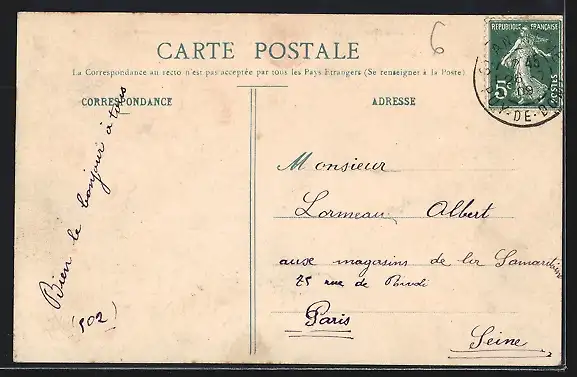 CARTE POSTALE
La Correspondance au recto n'est pas acceptée par tous les Pays Etrangers (Se renseigner à la Poste)
CORRESPONDANCE
ADRESSE
6
REPUBLIQUE FRANÇAISE
5c
POSTES
45
09
-DE-D
Bien le bonjour à tous
(502)
Monsieur
Lormeau Albert
aux magasins de la Samaritaine
75 rue de Rivoli
Paris
Seine